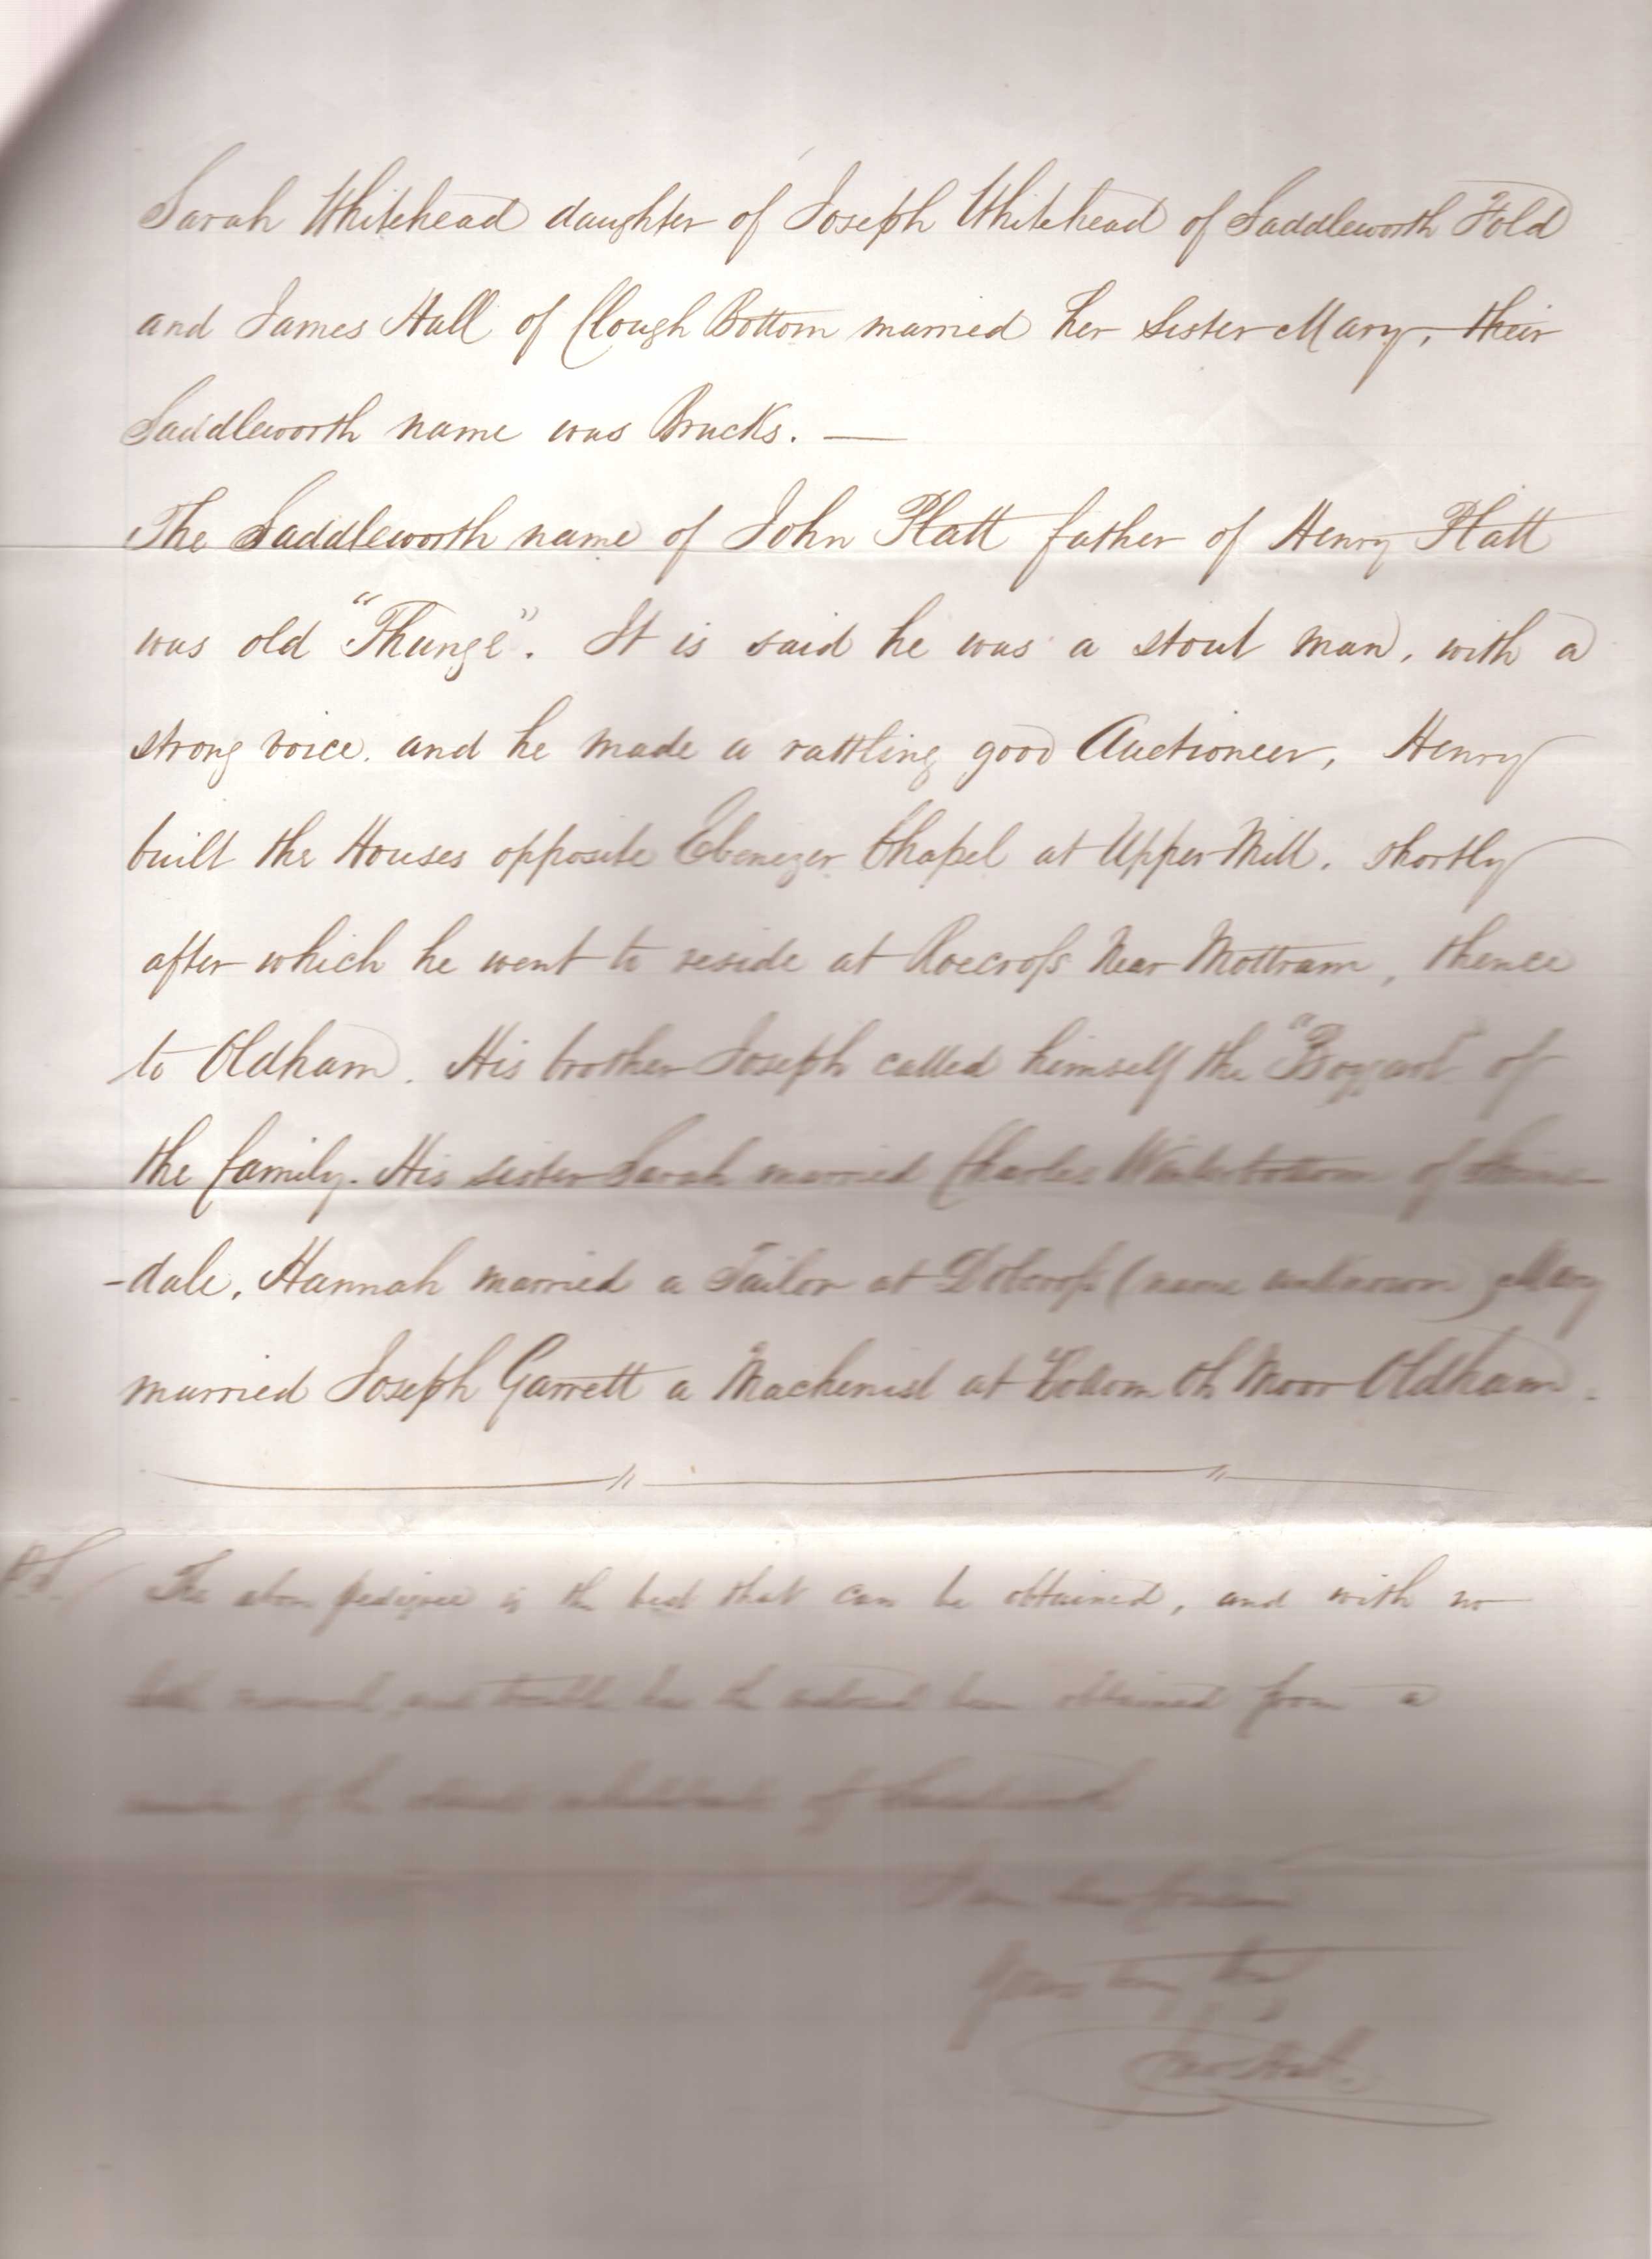 Sarah Whitehead daughter of Joseph Whitehead of Saddleworth Fold
and James Hall of Clough Bottom married her sister Mary, their
Saddleworth name was Brucks. —
The Saddleworth name of John Platt father of Henry Platt
was old "Thunge". It is said he was a stout man, with a
strong voice, and he made a rattling good Auctioneer, Henry
built the Houses opposite Ebenezer Chapel at Upper Mill. shortly
after which he went to reside at Roecross Near Mottram, thence
to Oldham. His brother Joseph called himself the "Boggart" of
the family. His sister Sarah married Charles Winterbottom of
-dale, Hannah married a Tailor at Dobcross (name unknown) Mary
married Joseph Garrett a Machenist at Bottom Oth Moor Oldham.
P.S. The above pedigree is the best that can be obtained, and with no
and trouble has the been obtained from a
number of the of
I am
Yours very